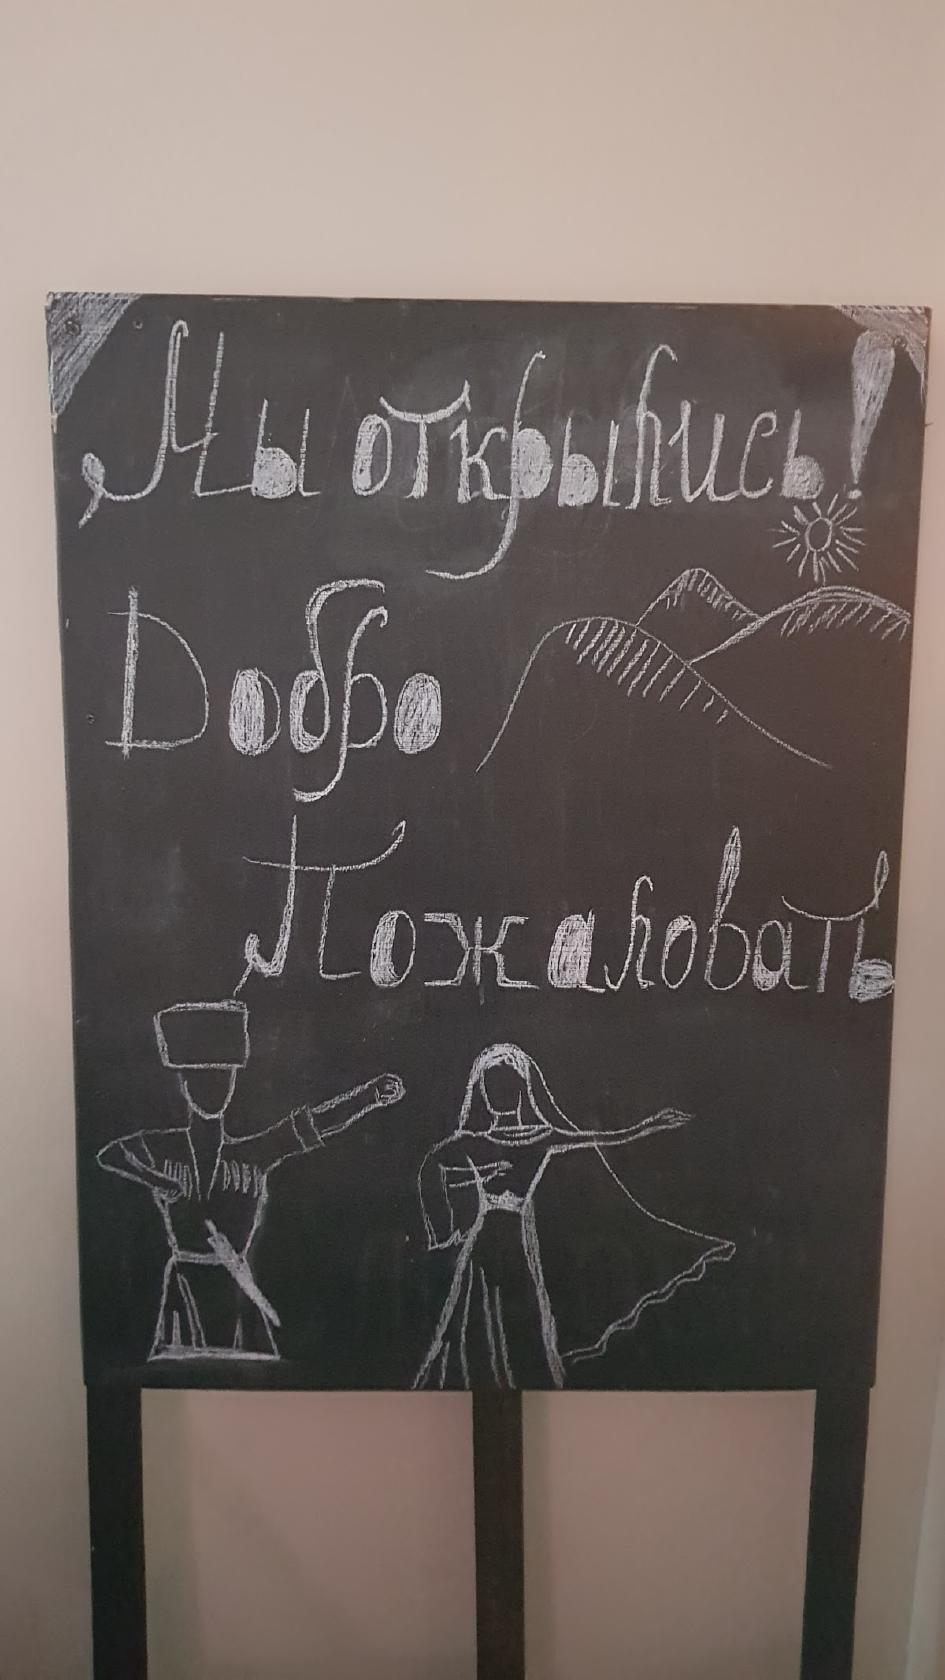 Мы открылись!
Добро
Пожаловать